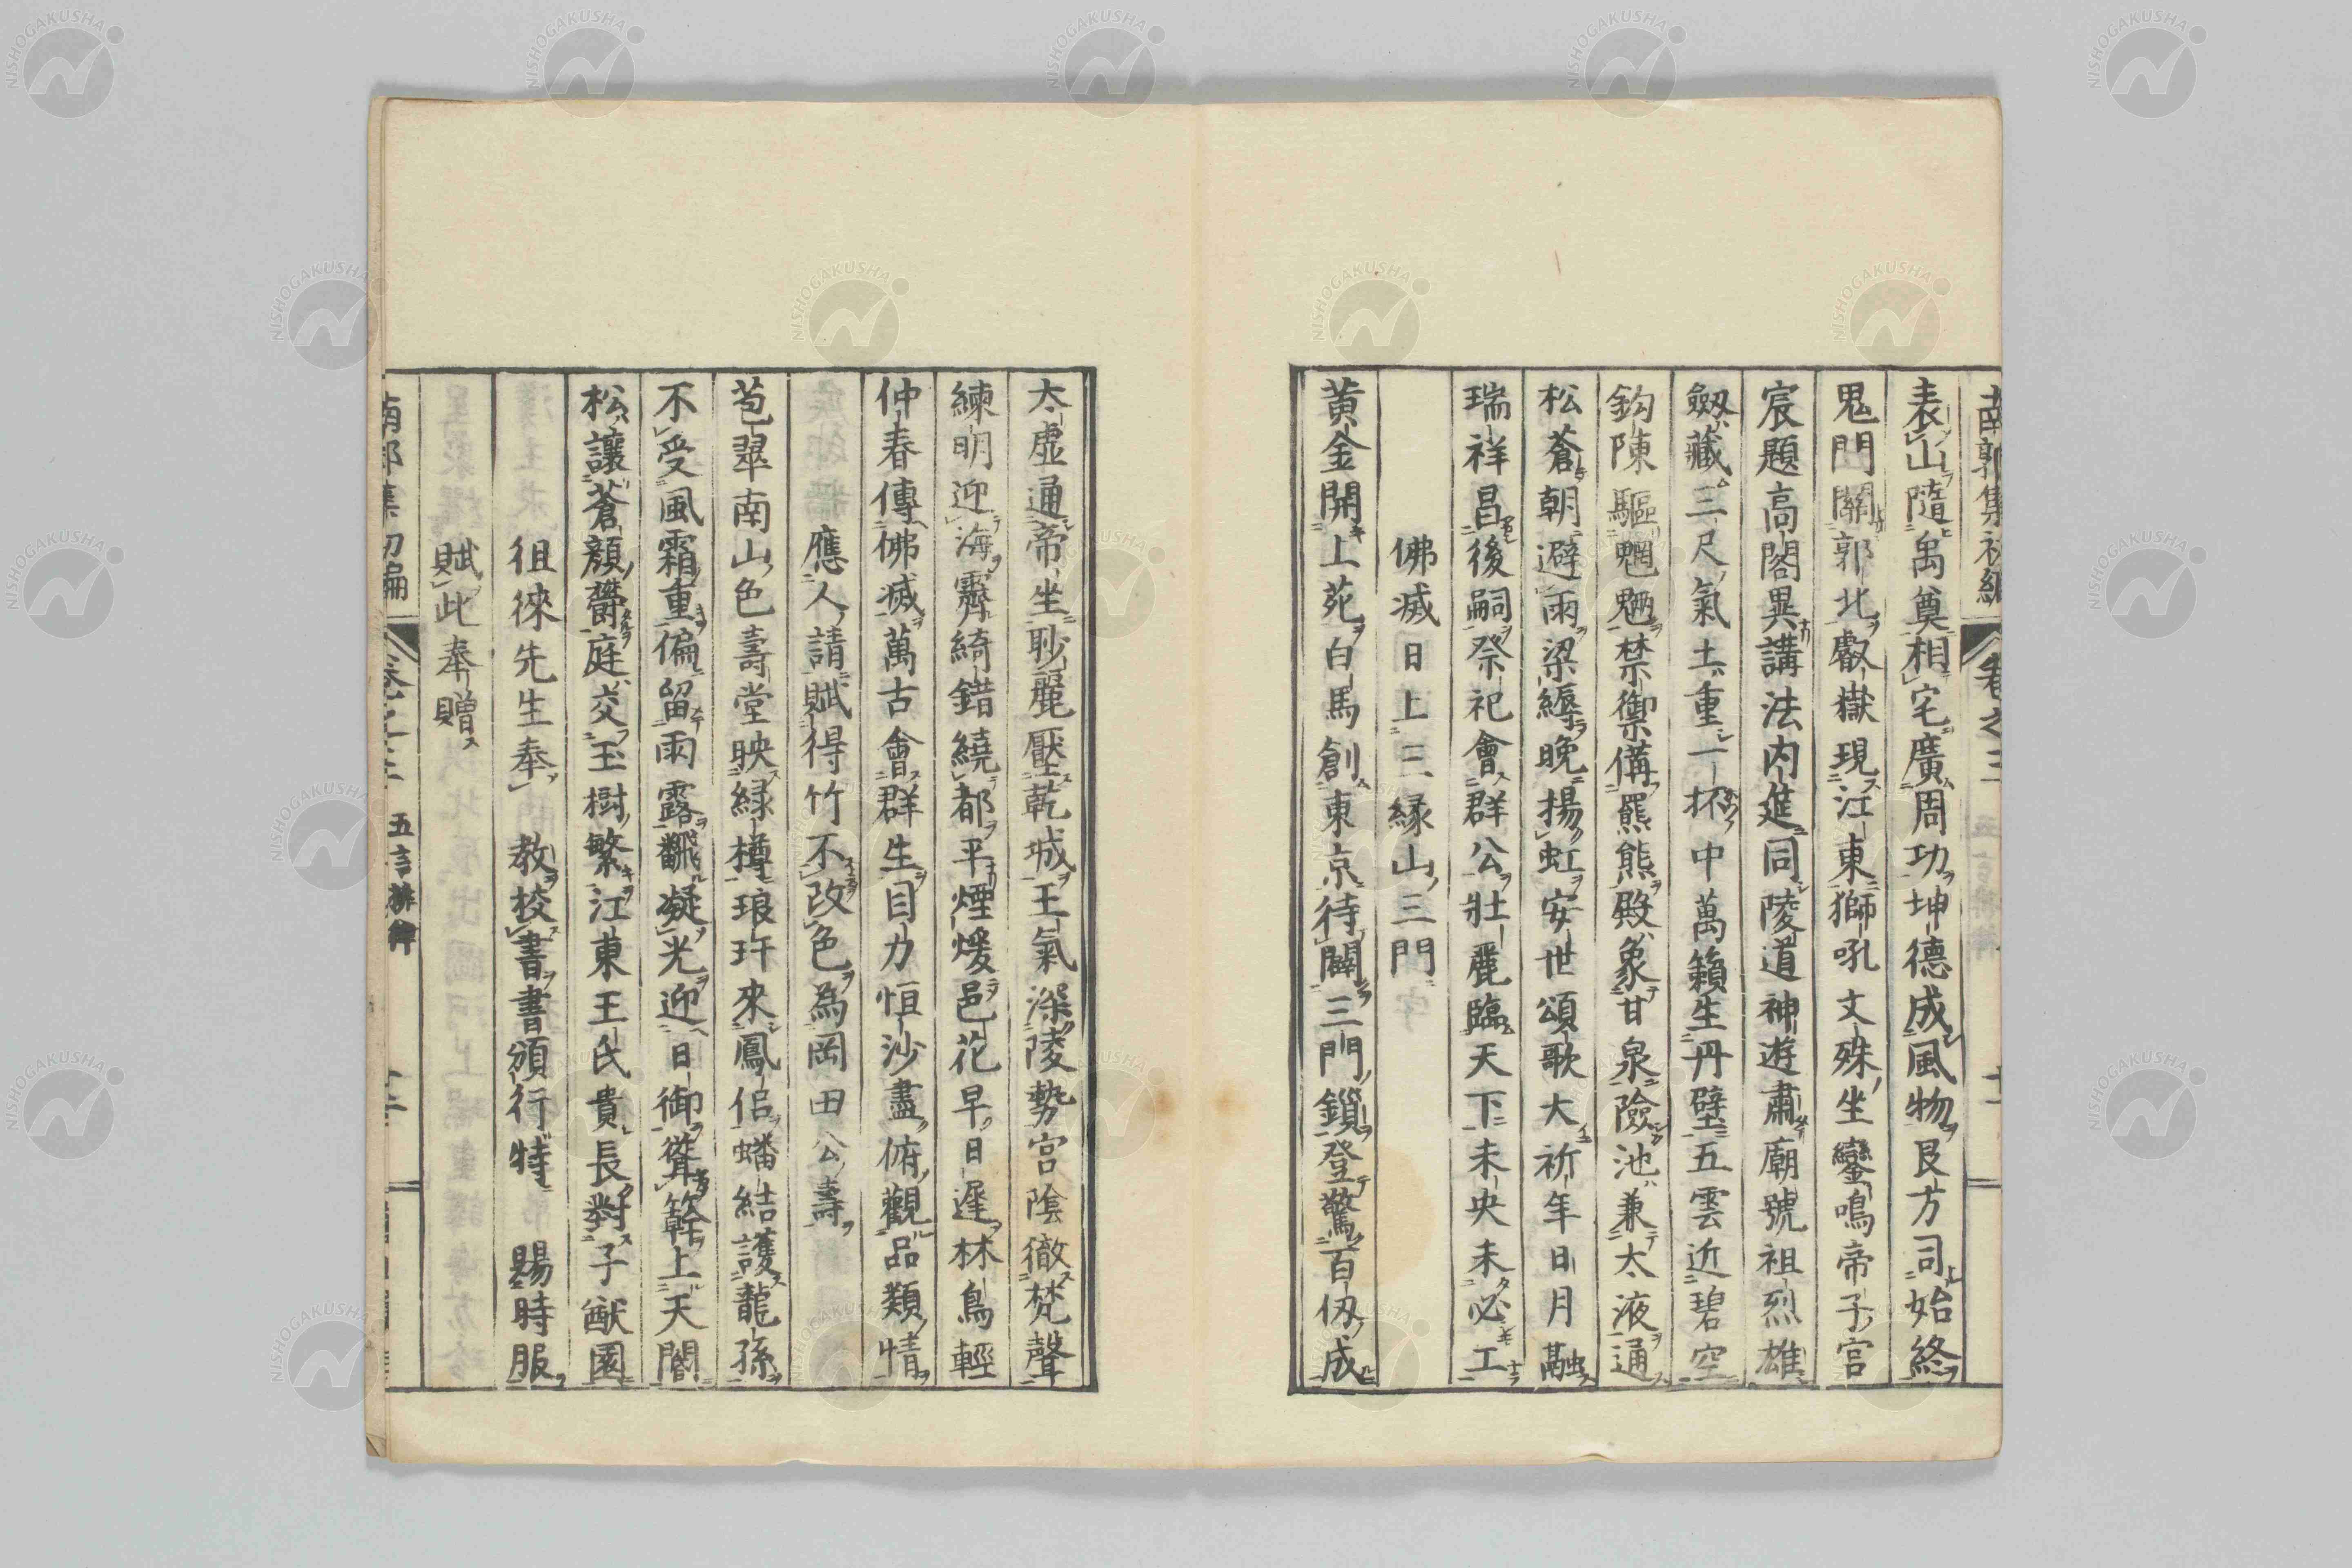 南郭集初編 卷之三
表山隨禹奠相宅廣周功坤德成風物艮方司始終
鬼門關郭北叡嶽現江東獅吼文殊坐鑾鳴帝子宮
宸題高閣異講法內進同陵道神遊肅廟號祖烈雄
劔藏三尺氣土重一抔中萬籟生丹壁五雲近碧空
鈎陳驅魍魎禁禦備羆熊殿象甘泉險池兼太液通
松蒼朝避雨梁縟晚揚虹安世頌歌大祈年日月融
瑞祥昌後嗣祭祀會群公壯麗臨天下未央未必工
佛滅日上三緣山三門
黃金開上苑白馬創東京待闢三門鎖登驚百仭成
太虛通帝坐眇麗壓乾城王氣深陵勢宮陰徹梵聲
練明迎海霽綺錯繞都平煙煖邑花早日遲林鳥輕
仲春傳佛滅萬古會群生目力恒沙盡俯觀品類情
應人請賦得竹不改色為岡田公壽
苞翠南山色壽堂映綠樽琅玕來鳳侶蟠結護龍孫
不受風霜重偏留雨露飜凝光迎日御聳簳上天閽
松讓蒼顏鬱庭交玉樹繁江東王氏貴長對子猷園
徂徠先生奉 教校書書頒行特 賜時服
賦此奉贈
南郭集初編 卷之三 五言排律
NISHOGAKUSHA